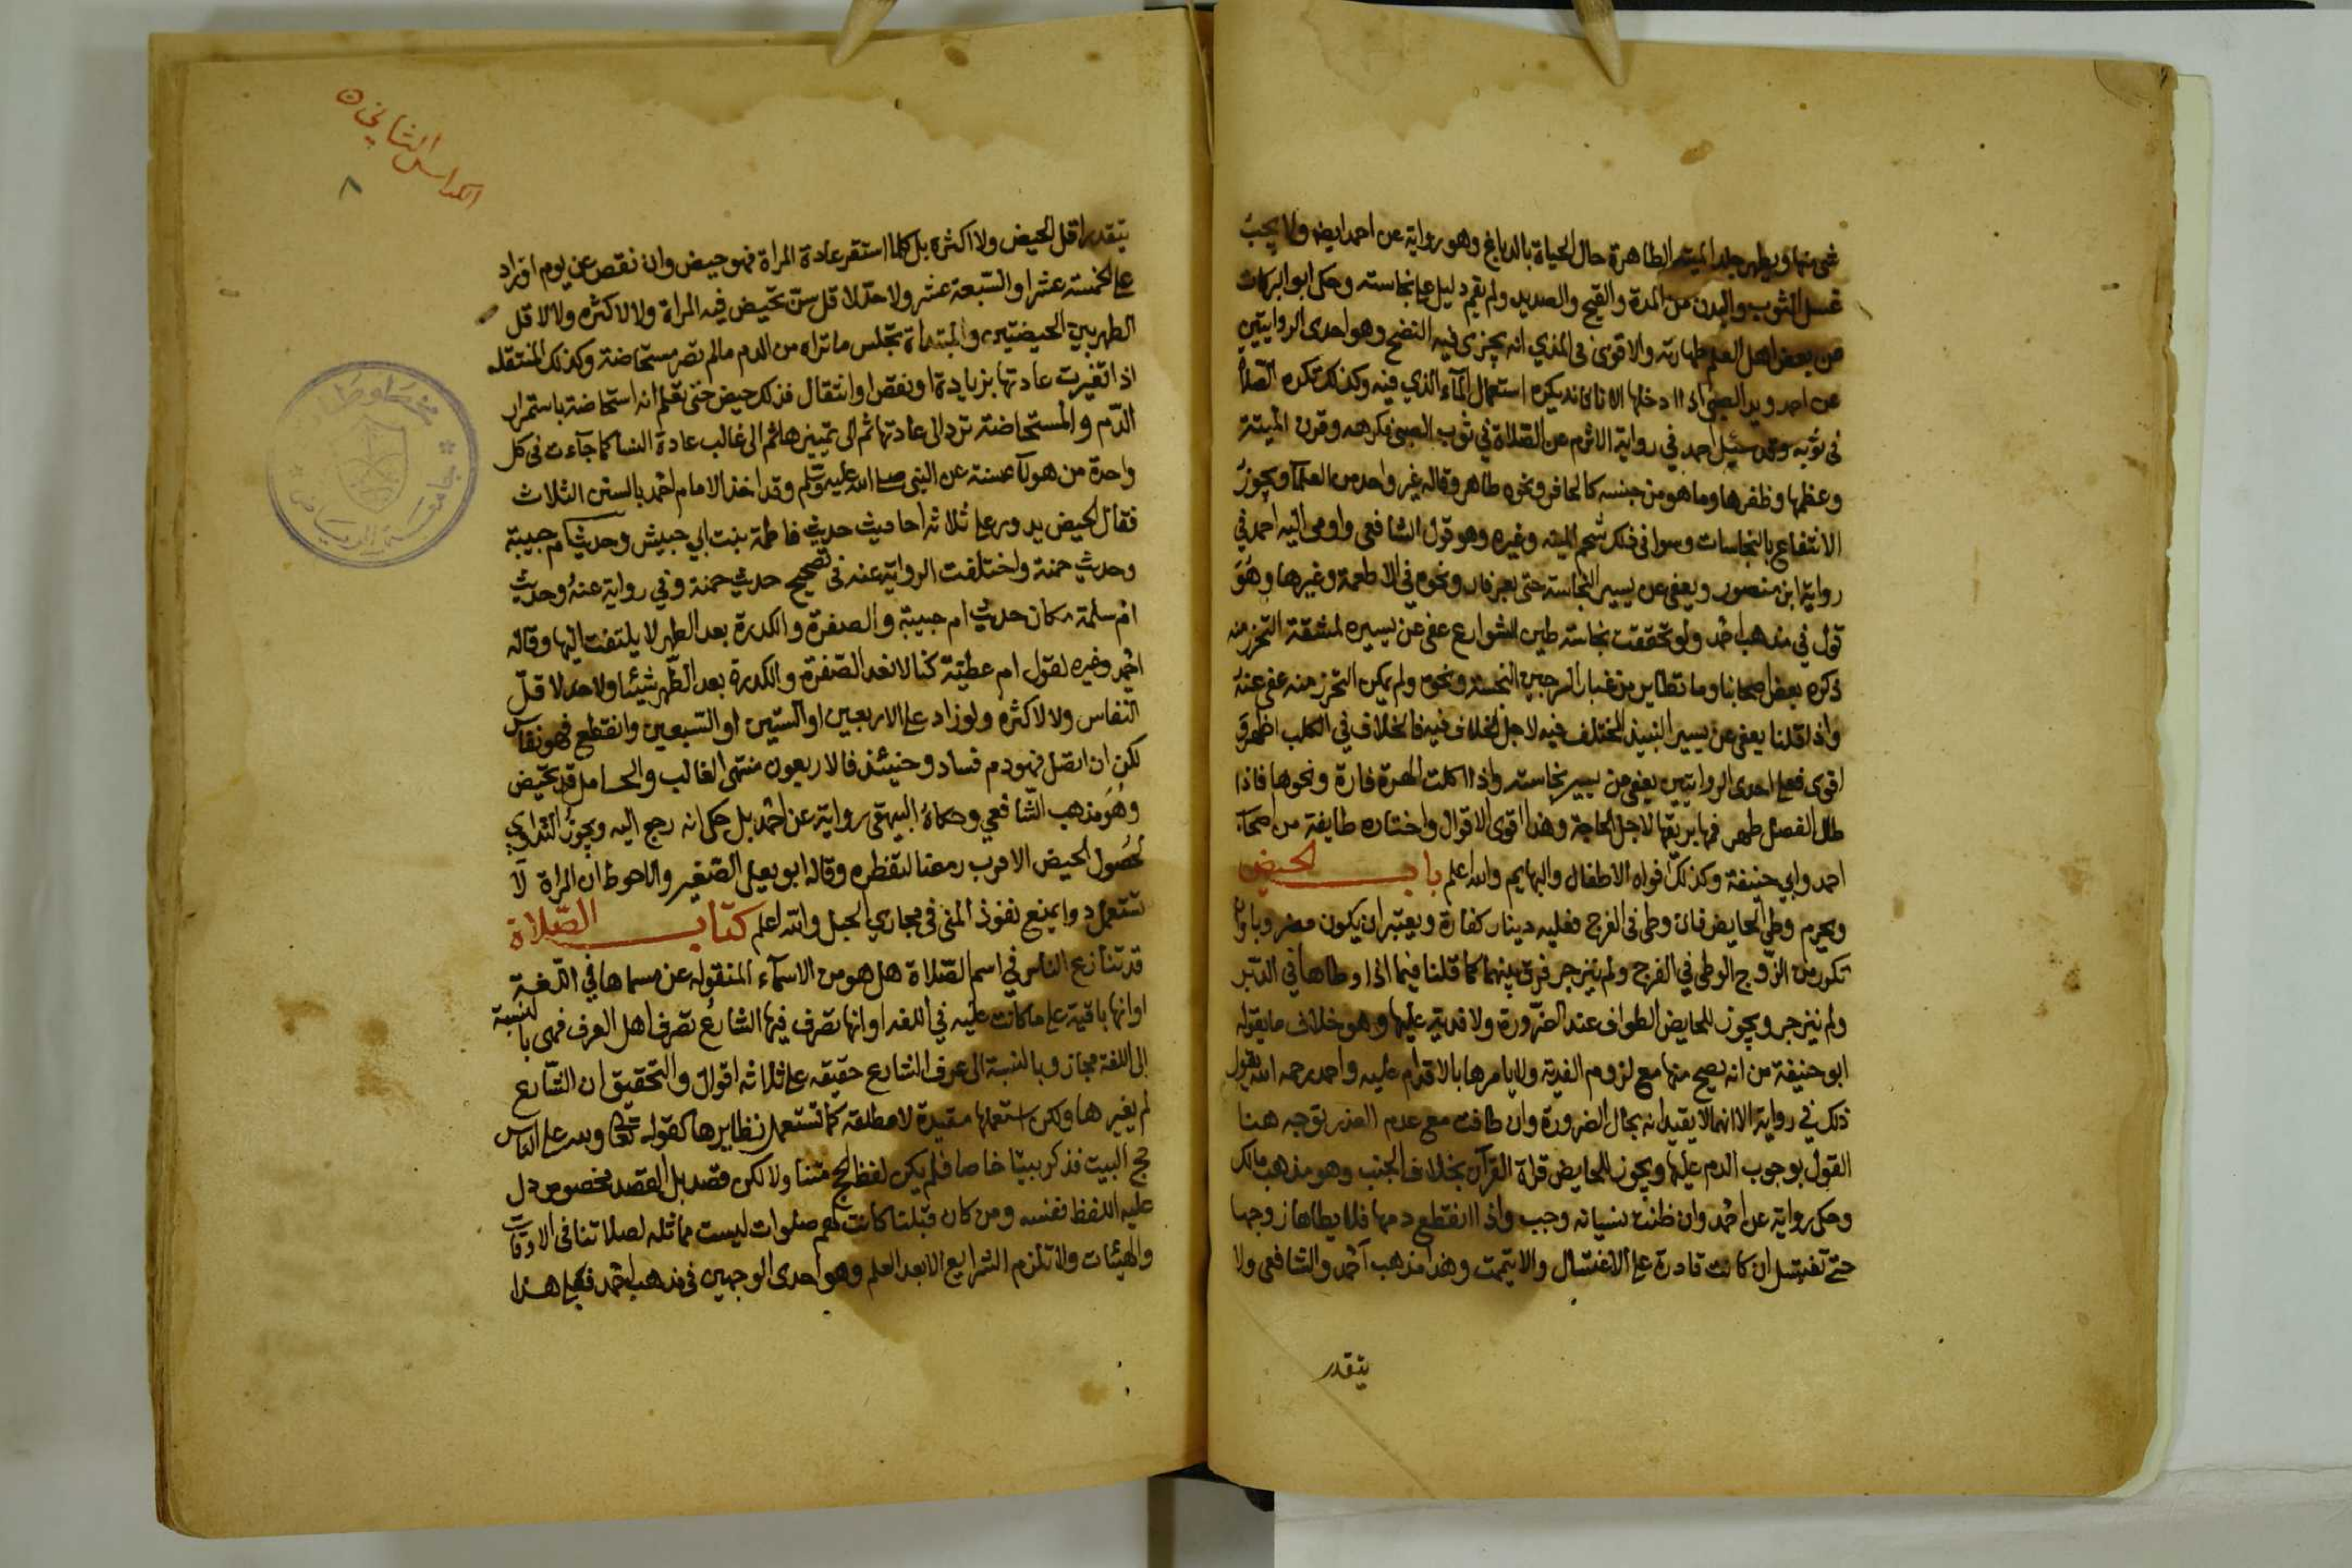 شي منها ويطهر جلد الميتة الطاهرة حال الحياة بالدباغ وهو رواية عن احمد ايضا ولا يجب
غسل الثوب والبدن من المدة والقيح والصديد ولم يقم دليل على نجاسته وحكى ابو البركات
عن بعض اهل العلم طهارته والاقوى في المذي انه يجزى فيه النضح وهو احدى الروايتين
عن احمد ويد الصبي اذا ادخلها الاناء فانه يكره استعمال الماء الذي فيه وكذلك تكره الصلاة
في ثوبه وقد سيل احمد في رواية الاثرم عن الصلاة في ثوب الصبي فكرهه وقرن الميتة
وعظمها وظفرها وما هو من جنسه كالحافر ونحوه طاهر وقاله غير واحد من العلما ويجوز
الانتفاع بالنجاسات وسوا في ذلك شحم الميته وغيره وهو قول الشافعي واومى اليه احمد في
رواية ابن منصور ويعفى عن يسير النجاسة حتى بعر فار ونحوه في الاطعمة وغيرها وهو
قول في مذهب احمد ولو تحققت نجاسة طين الشوارع عفي عن يسيره لمشقة التحرز منه
ذكره بعض اصحابنا وما تطاير من غبار السرجين النجسة ونحوه ولم يمكن التحرز منه عفي عنه
واذا قلنا يعفى عن يسير النبيذ المختلف فيه لاجل الخلاف فيه فالخلاف في الكلب اظهر و
اقوى فعلى احدى الروايتين يعفى عن يسير نجاسته واذا اكلت الهرة فارة ونحوها فاذا
طال الفصل طهر فمها بريقها لاجل الحاجة وهذا اقوى الاقوال واختاره طايفة من اصحاب
احمد وابي حنيفة وكذلك افواه الاطفال والبهايم والله اعلم باب الحيض
ويحرم وطي الحايض فان وطى في الفرج فعليه دينار كفارة ويعتبر ان يكون مضروبا واذا
تكرر من الزوج الوطي في الفرج ولم ينزجر فرق بينهما كما قلنا فيما اذا وطاها في الدبر
ولم ينزجر ويجوز للحايض الطواف عند الضرورة ولا فدية عليها وهو خلاف ما يقوله
ابو حنيفة من انه يصح منها مع لزوم الفدية ولا يامرها بالاقدام عليه واحمد رحمه الله يقول
ذلك في رواية الا انهما لا يقيدانه بحال الضرورة وان طافت مع عدم العذر توجه هنا
القول بوجوب الدم عليها ويجوز للحايض قراة القرآن بخلاف الجنب وهو مذهب مالك
وحكى رواية عن احمد وان ظنت نسيانه وجب واذا انقطع دمها فلا يطاها زوجها
حتى تغتسل ان كانت قادرة على الاغتسال والا تيممت وهذا مذهب احمد والشافعي ولا
يتقدر
الكراس الثاني
٨
يتقدر اقل الحيض ولا اكثره بل كلما استقر عادة المراة فهو حيض وان نقص عن يوم او زاد
على الخمسة عشر او السبعة عشر ولا حد لاقل سن تحيض فيه المراة ولا لاكثره ولا لاقل
الطهر بين الحيضتين والمبتداة تجلس ما تراه من الدم مالم تصر مستحاضة وكذلك المنتقله
اذا تغيرت عادتها بزيادة او نقص او انتقال فذلك حيض حتى تعلم انه استحاضة باستمرار
الدم والمستحاضة ترد الى عادتها ثم الى تمييزها ثم الى غالب عادة النسا كما جآءت في كل
واحدة من هولآء سنة عن النبي صلى الله عليه وسلم وقد اخذ الامام احمد بالسنن الثلاث
فقال الحيض يدور على ثلاثة احاديث حديث فاطمة بنت ابي حبيش وحديث ام حبيبة
وحديث حمنة واختلفت الرواية عنه في تصحيح حديث حمنة وفي رواية عنه وحديث
ام سلمة مكان حديث ام حبيبة والصفرة والكدرة بعد الطهر لا يلتفت اليها وقاله
احمد وغيره لقول ام عطية كنا لا نعد الصفرة والكدرة بعد الطهر شيئا ولا حد لاقل
النفاس ولا لاكثره ولو زاد على الاربعين او الستين او السبعين وانقطع فهو نفاس
لكن ان اتصل فهو دم فساد وحينئذ فالاربعون منتهى الغالب والحامل قد تحيض
وهو مذهب الشافعي وحكاه البيهقي رواية عن احمد بل حكى انه رجع اليه ويجوز التداوي
لحصول الحيض الا قرب رمضا لتفطره وقاله ابو يعلى الصغير والاحوط ان المراة لا
تستعمل دوا يمنع نفوذ المني في مجاري الحبل والله اعلم كتاب الصلاة
قد تنازع الناس في اسم الصلاة هل هو من الاسمآء المنقوله عن مسماها في اللغة
او انها باقية على ما كانت عليه في اللغه او انها تصرف فيها الشارع تصرف اهل العرف فهي بالنسبة
الى اللغة مجاز وبالنسبة الى عرف الشارع حقيقه على ثلاثه اقوال والتحقيق ان الشارع
لم يغيرها ولكن استعملها مقيدة لا مطلقة كما تستعمل نظايرها كقوله تعالى ولله على الناس
حج البيت فذكر بيتا خاصا فلم يكن لفظ الحج متنا ولا لكل قصد بل لقصد مخصوص دل
عليه اللفظ نفسه ومن كان قبلنا كانت لهم صلوات ليست مماثله لصلاتنا في الاوقات
والهيئات ولا تلزم الشرايع الا بعد العلم وهو احدى الوجهين في مذهب احمد فعلى هذا
مخطوطات
جامعة الرياض